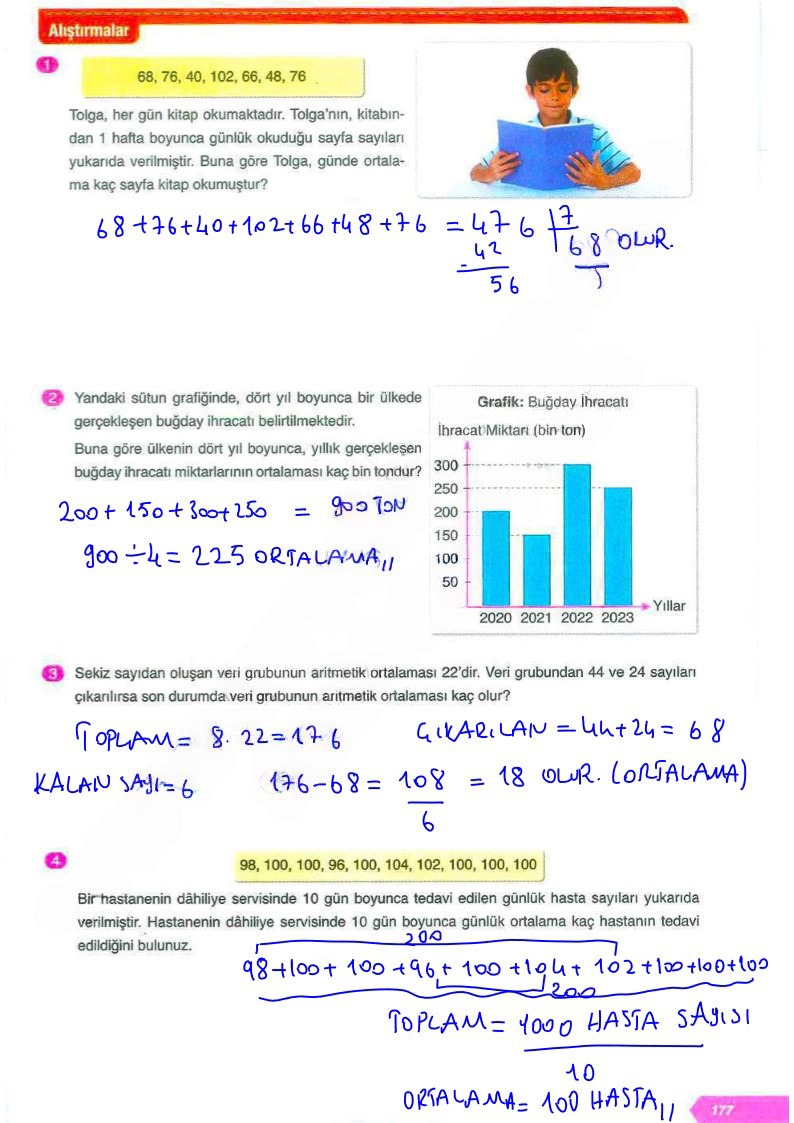 Alıştırmalar
1
68, 76, 40, 102, 66, 48, 76
Tolga, her gün kitap okumaktadır. Tolga'nın, kitabın-
dan 1 hafta boyunca günlük okuduğu sayfa sayıları
yukarıda verilmiştir. Buna göre Tolga, günde ortala-
ma kaç sayfa kitap okumuştur?
68+76+40+102+66+48+76 = 476 7
- 42 68 OLUR.
56
2 Yandaki sütun grafiğinde, dört yıl boyunca bir ülkede
gerçekleşen buğday ihracatı belirtilmektedir.
Buna göre ülkenin dört yıl boyunca, yıllık gerçekleşen
buğday ihracatı miktarlarının ortalaması kaç bin tondur?
200+150+300+250 = 900 TON
900 ÷ 4 = 225 ORTALAMA,,
Grafik: Buğday İhracatı
İhracat Miktarı (bin ton)
300
250
200
150
100
50
Yıllar
2020 2021 2022 2023
3 Sekiz sayıdan oluşan veri grubunun aritmetik ortalaması 22'dir. Veri grubundan 44 ve 24 sayıları
çıkarılırsa son durumda veri grubunun aritmetik ortalaması kaç olur?
TOPLAM = 8. 22=176 ÇIKARILAN = 44+24= 68
KALAN SAYI=6 176-68= 108 = 18 OLUR. (ORTALAMA)
6
4
98, 100, 100, 96, 100, 104, 102, 100, 100, 100
Bir hastanenin dâhiliye servisinde 10 gün boyunca tedavi edilen günlük hasta sayıları yukarıda
verilmiştir. Hastanenin dâhiliye servisinde 10 gün boyunca günlük ortalama kaç hastanın tedavi
edildiğini bulunuz.
200
98+100+ 100 +96+ 100 +104+ 102+100+100+100
200
TOPLAM = 1000 HASTA SAYISI
10
ORTALAMA= 100 HASTA,,
177